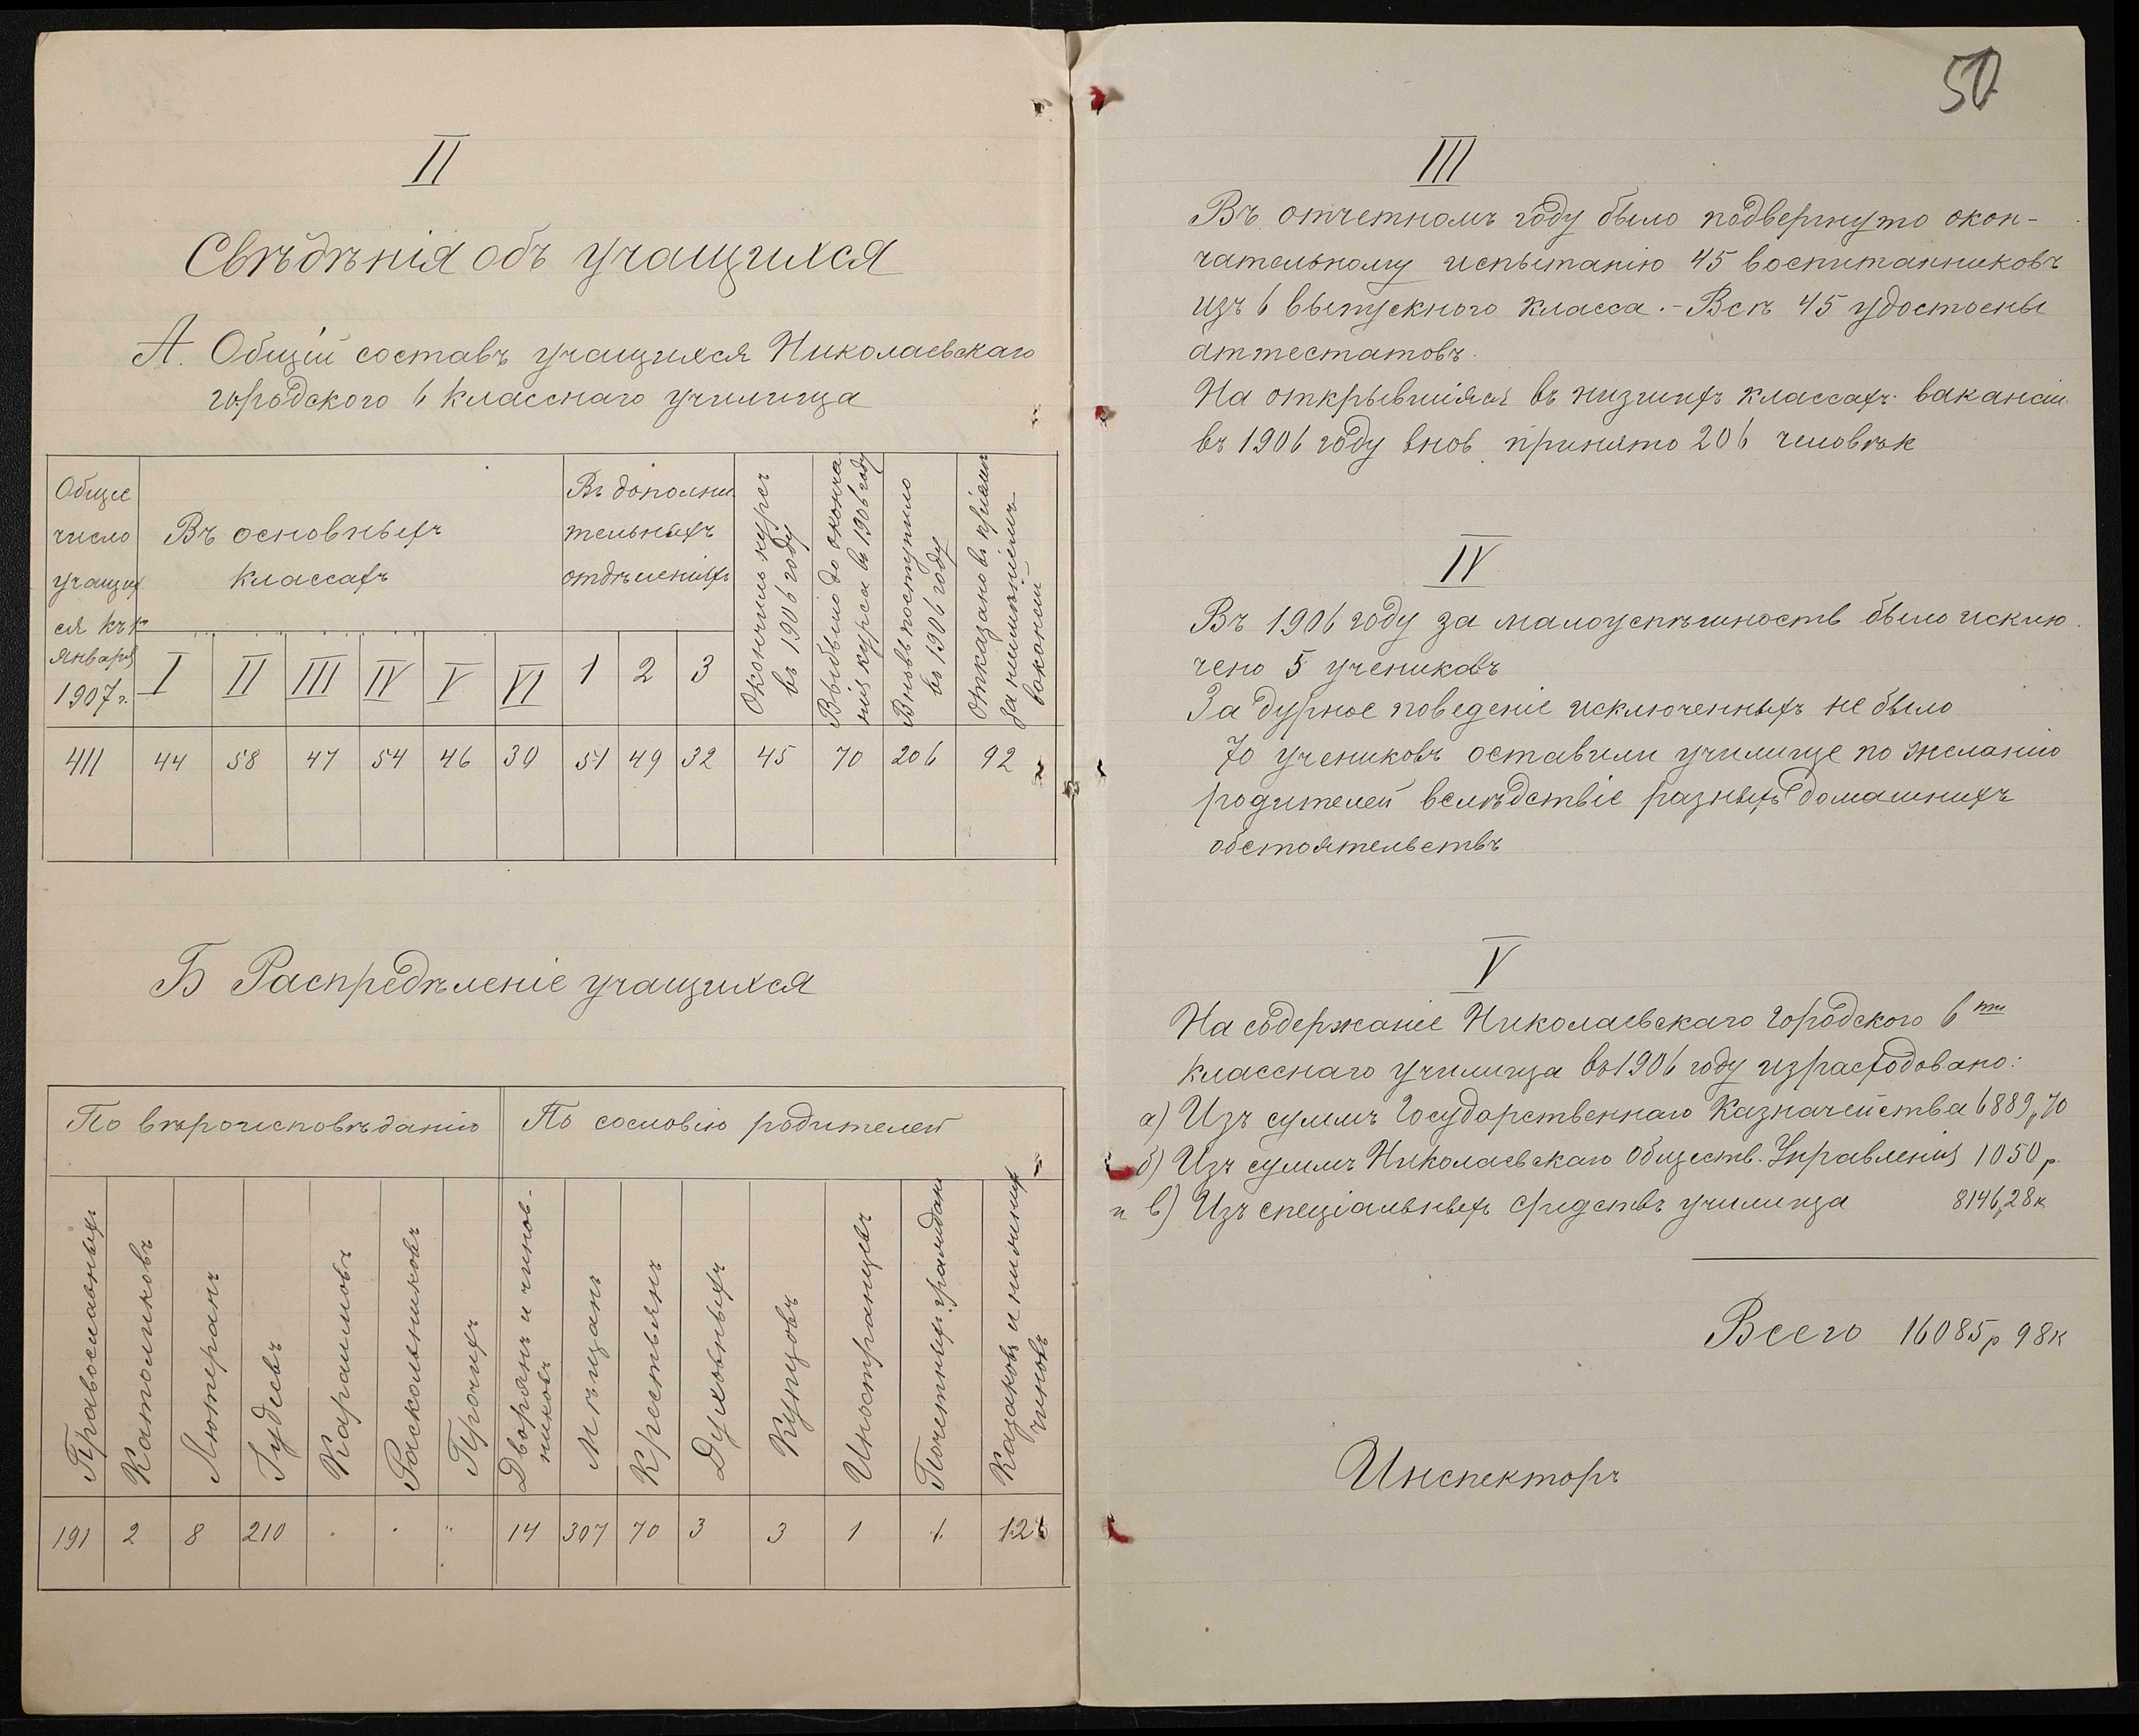 II
Свѣдѣнія объ учащихся
А. Общій составъ учащихся Николаевскаго
городского 6 класснаго училища
Общее
число
учащих
ся къ 1
Января
1907 г.
Въ основныхъ
классахъ
I II III IV V VI
Въ дополни
тельныхъ
отдѣленіяхъ
1 2 3
Окончилъ курсъ
въ 1906 году
Выбыло до оконча
нія курса въ 1906 году
Вновь поступило
въ 1906 году
Отказано въ пріемѣ
за неимѣніемъ
ваконсій
411 44 58 47 54 46 30 51 49 32 45 70 206 92
Б Распредѣленіе учащихся
По вѣроисповѣданію По сословію родителей
Православныхъ
Католиковъ
Лютеранъ
Іудеевъ
Караимовъ
Раскольниковъ
Прочихъ
Дворянъ и чинов-
никовъ
Мѣщанъ
Крестьянъ
Духовныхъ
Купцовъ
Иностранцевъ
Почетныхъ гражданъ
Казаковъ и нижнихъ
чиновъ
191 2 8 210 . . " 14 307 70 3 3 1 1 12
50
III
Въ отчетномъ году было подвергнуто окон-
чательному испытанію 45 воспитанниковъ
изъ 6 выпускного класса. - Всѣ 45 удостоены
аттестатовъ.
На открывшіяся въ низшихъ классахъ вакансіи
въ 1906 году внов принято 206 человѣк
IV
Въ 1906 году за малоуспѣшность было исклю
чено 5 учениковъ
За дурное поведеніе исключенныхъ не было
70 учениковъ оставили училище по желанію
родителей вслѣдствіе разныхъ домашнихъ
обстоятельствъ
V
На содержаніе Николаевскаго городского 6 ти
класснаго училища въ 1906 году израсходовано:
а) Изъ суммъ Государственнаго Казначейства 6889р70
б) Изъ суммъ Николаевскаго Обществ. Управленія 1050 р.
и в) Изъ спеціальныхъ средствъ училища 8146р28к
Всего 16085р 98к
Инспекторъ